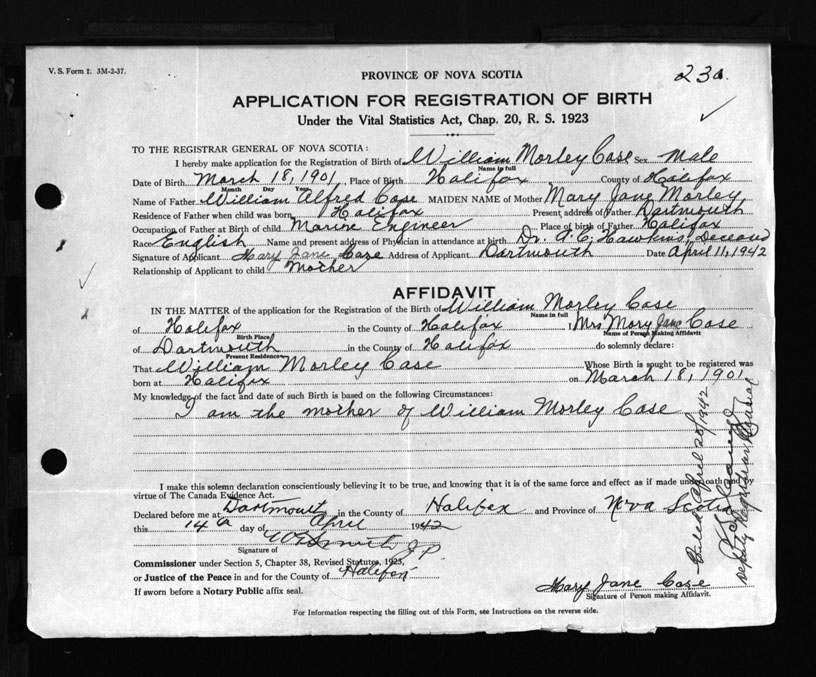 V. S. Form 1. 3M-2-37.
PROVINCE OF NOVA SCOTIA
23a.
APPLICATION FOR REGISTRATION OF BIRTH
Under the Vital Statistics Act, Chap. 20, R. S. 1923
TO THE REGISTRAR GENERAL OF NOVA SCOTIA:
I hereby make application for the Registration of Birth of William Morley Case Sex Male
Name in full
Date of Birth March 18, 1901 Place of Birth Halifax County of Halifax
Month Day Year
Name of Father William Alfred Case MAIDEN NAME of Mother Mary Jane Morley
Residence of Father when child was born Halifax Present address of Father Dartmouth
Occupation of Father at Birth of child Marine Engineer Place of birth of Father Halifax
Race English Name and present address of Physician in attendance at birth Dr. A. C. Hawkins, Deceased
Signature of Applicant Mary Jane Case Address of Applicant Dartmouth Date April 11, 1942
Relationship of Applicant to child Mother
AFFIDAVIT
IN THE MATTER of the application for Registration of the Birth of William Morley Case
Name in full
of Halifax in the County of Halifax I Mrs Mary Jane Case
Birth Place Name of Person Making Affidavit
of Dartmouth in the County of Halifax do solemnly declare:
Present Residence
That William Morley Case Whose Birth is sought to be registered was
born at Halifax on March 18, 1901
My knowledge of the fact and date of such Birth is based on the following Circumstances:
I am the mother of William Morley Case
I make this solemn declaration conscientiously believing it to be true, and knowing that it is of the same force and effect as if made under oath and by
virtue of The Canada Evidence Act.
Declared before me at Dartmouth in the County of Halifax and Province of Nova Scotia
this 14th day of April 1942
Smith J P.
Signature of
Commissioner under Section 5, Chapter 38, Revised Statutes, 1923,
or Justice of the Peace in and for the County of Halifax
If sworn before a Notary Public affix seal.
Mary Jane Case
Signature of Person making Affidavit.
For Information respecting the filling out of this Form, see Instructions on the reverse side.
April 20/1942
Deputy Registrar General